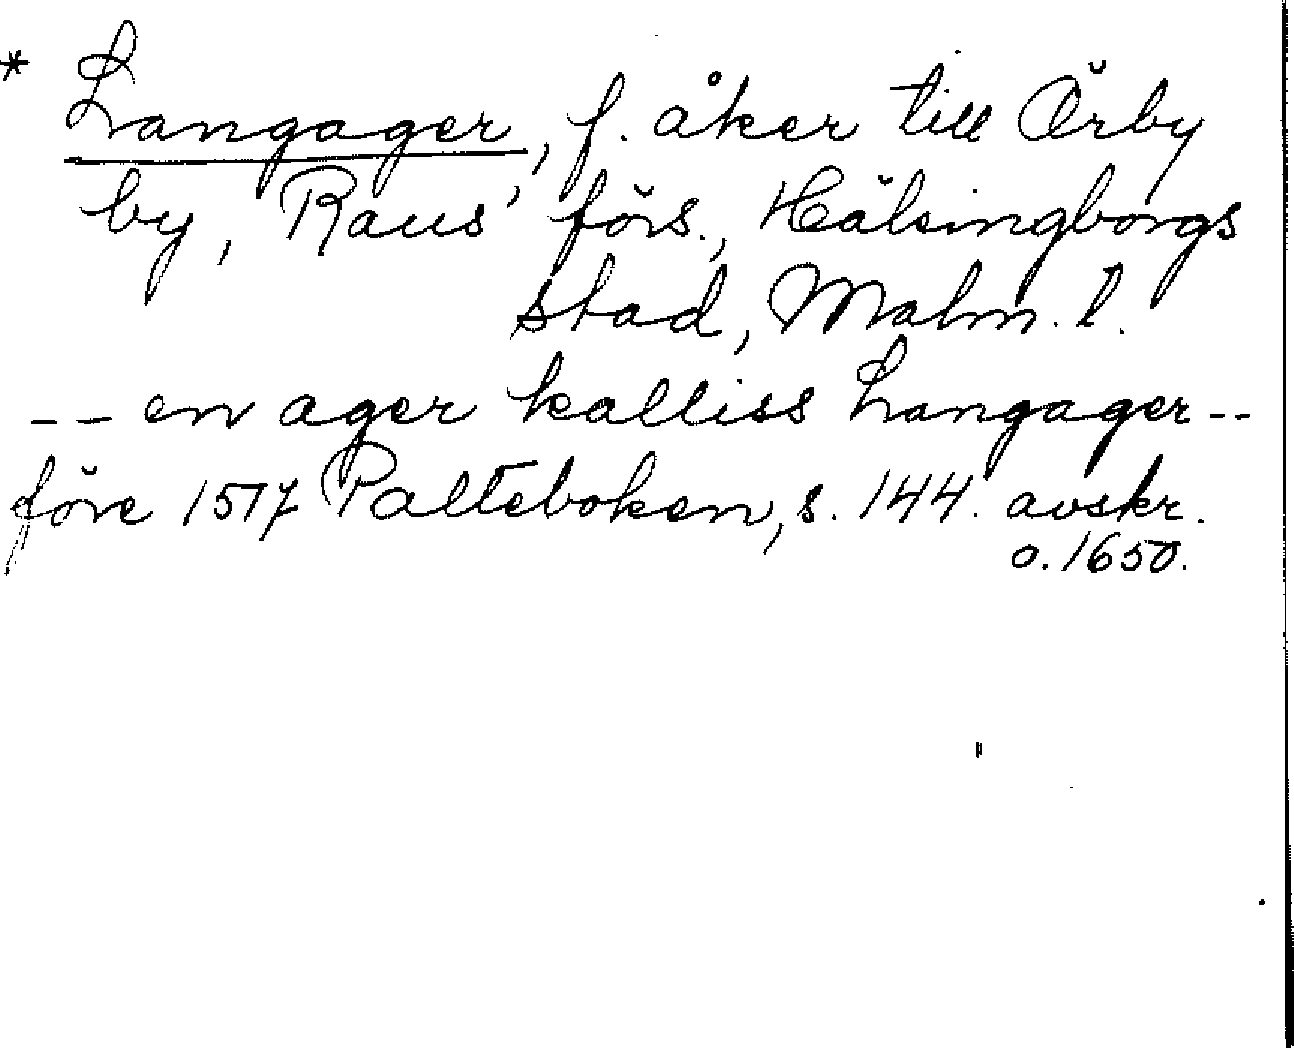 * Langager, f. åker till Örby
by, Raus' förs., Hälsingborgs
stad, Malm. l.
-- en ager kalliss Langager --
före 1517 Palteboken, s. 144. avskr.
o. 1650.